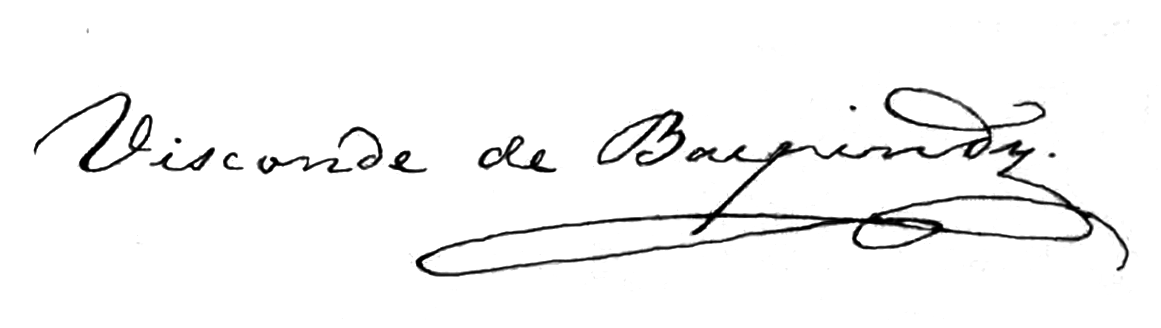 Visconde de Baependy.